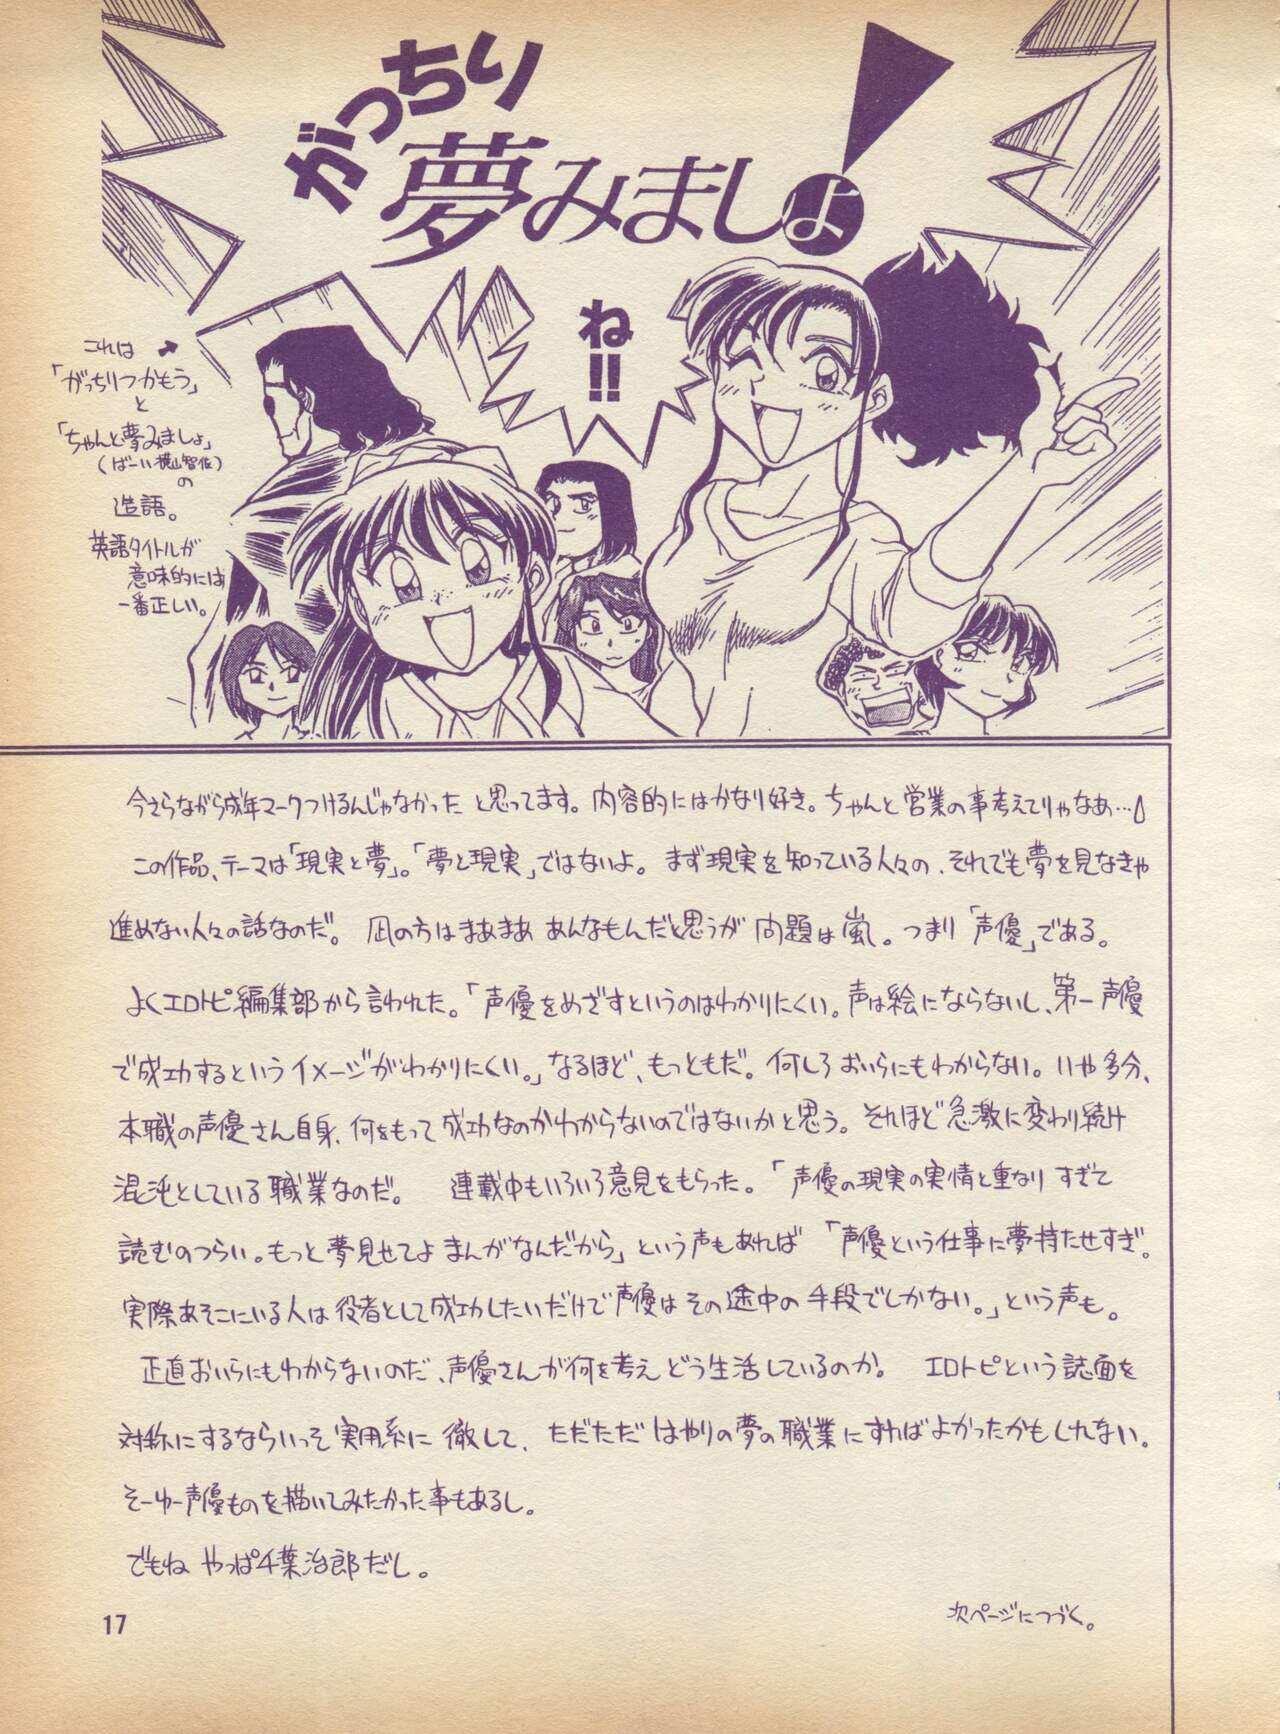 がっちり
夢みましょ！
ね!!
これは
「がっちりつかもう」
と
「ちゃんと夢みましょ」
(ばーい横山智佐)
の
造語。
英語タイトルが
意味的には
一番正しい。
今さらながら成年マークつけるんじゃなかったと思ってます。内容的にはかなり好き。ちゃんと営業の事考えてりゃなあ…
この作品、テーマは「現実と夢」。「夢と現実」ではないよ。まず現実を知っている人々の、それでも夢を見なきゃ
進めない人々の話なのだ。凪の方はまあまああんなもんだと思うが問題は嵐。つまり「声優」である。
よくエロトピ編集部から言われた。「声優をめざすというのはわかりにくい。声は絵にならないし、第一声優
で成功するというイメージがわかりにくい。」なるほど、もっともだ。何しろおいらにもわからない。いや多分、
本職の声優さん自身、何をもって成功なのかわからないのではないかと思う。それほど急激に変わり続け
混沌としている職業なのだ。 連載中もいろいろ意見をもらった。「声優の現実の実情と重なりすぎて
読むのつらい。もっと夢見せてよまんがなんだから」という声もあれば「声優という仕事に夢持たせすぎ。
実際あそこにいる人は役者として成功したいだけで声優はその途中の手段でしかない。」という声も。
正直おいらにもわからないのだ、声優さんが何を考えどう生活しているのか。 エロトピという誌面を
対称にするならいっそ実用系に徹して、ただただはやりの夢の職業にすればよかったかもしれない。
そーゆー声優ものを描いてみたかった事もあるし。
でもねやっぱ千葉治郎だし。
次ページにつづく。
17